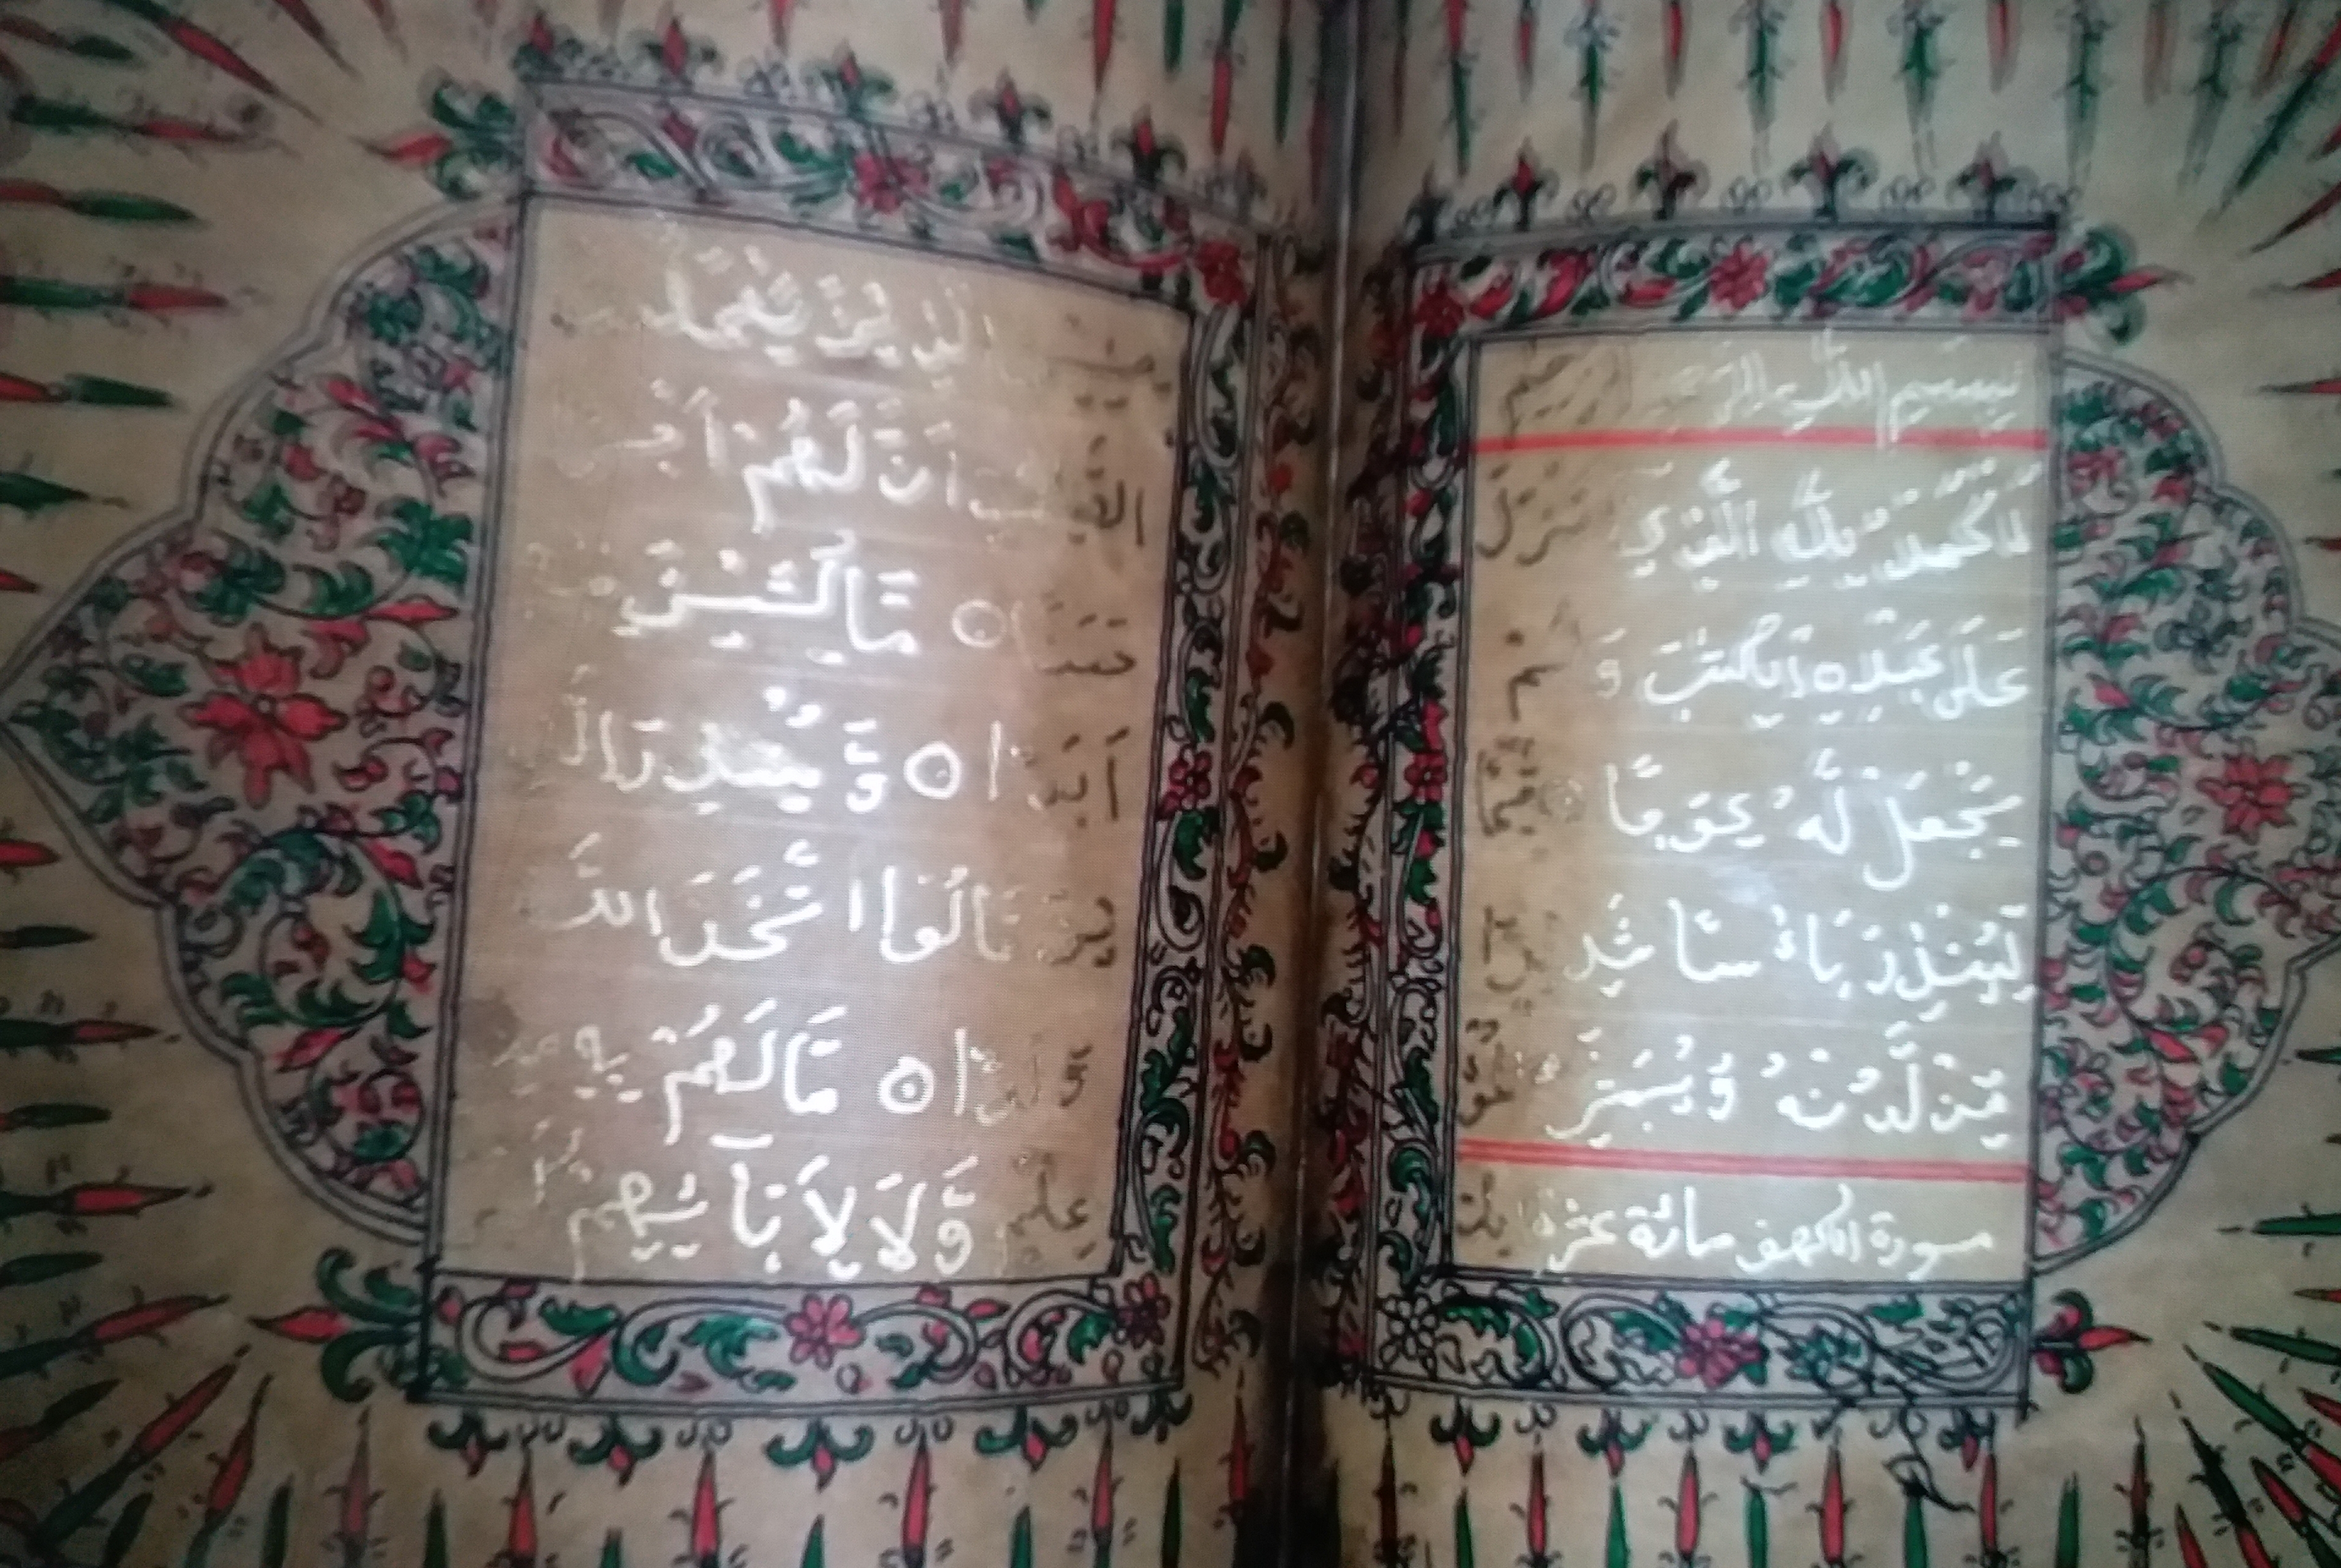 بِسْمِ اللّٰهِ الرَّحْمٰنِ الرَّحِيْمِ
اَلْحَمْدُ لِلّٰهِ الَّذِيْ اَنْزَلَ
عَلٰى عَبْدِهِ الْكِتٰبَ وَلَمْ
يَجْعَلْ لَّهُ عِوَجًا قَيِّمًا
لِّيُنْذِرَ بَاْسًا شَدِيْدًا
مِّنْ لَّدُنْهُ وَيُبَشِّرَ الْمُؤْ
سورة الكهف مائة عشر
مِنِيْنَ الَّذِيْنَ يَعْمَلُوْنَ
الصّٰلِحٰتِ اَنَّ لَهُمْ اَجْرًا
حَسَنًا ○ مَّاكِثِيْنَ فِيْهِ
اَبَدًا ○ وَّيُنْذِرَ الَّذِ
يْنَ قَالُوا اتَّخَذَ اللّٰهُ
وَلَدًا ○ مَا لَهُمْ بِهٖ مِنْ
عِلْمٍ وَّلَا لِاٰبَآئِهِمْ كَبُرَتْ